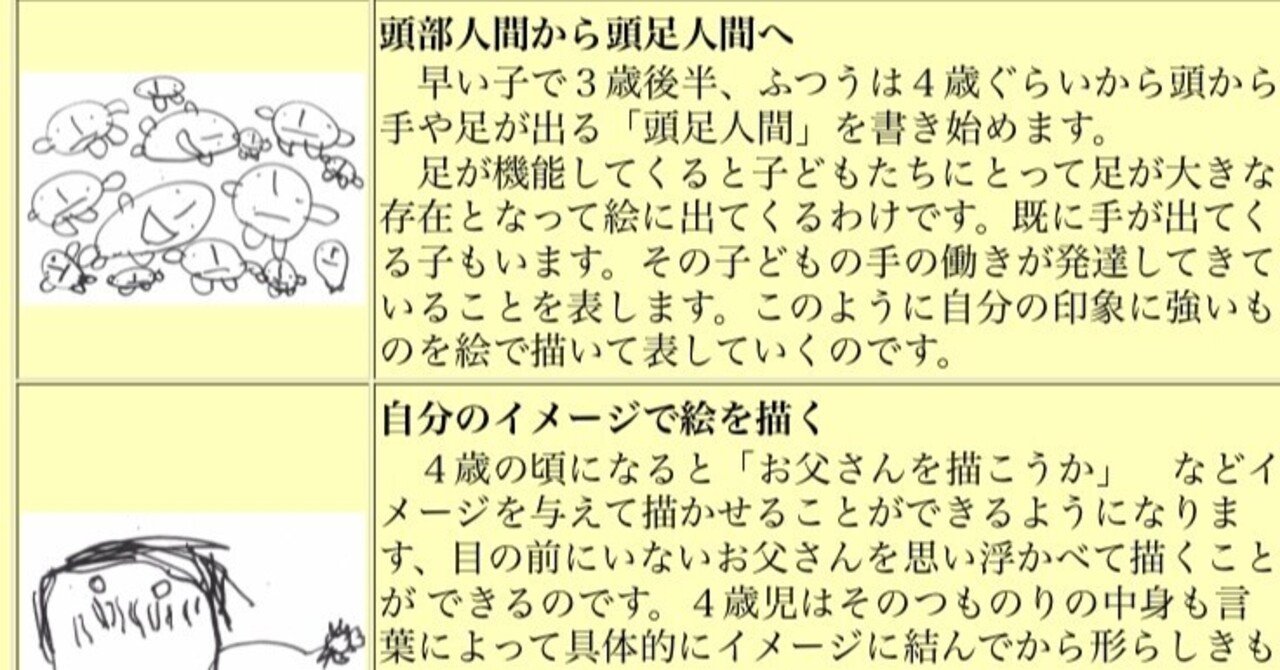 頭部人間から頭足人間へ
早い子で３歳後半、ふつうは４歳ぐらいから頭から
手や足が出る「頭足人間」を書き始めます。
足が機能してくると子どもたちにとって足が大きな
存在となって絵に出てくるわけです。既に手が出てく
る子もいます。その子どもの手の働きが発達してきて
いることを表します。このように自分の印象に強いも
のを絵で描いて表していくのです。
自分のイメージで絵を描く
４歳の頃になると「お父さんを描こうか」　などイ
メージを与えて描かせることができるようになりま
す、目の前にいないお父さんを思い浮かべて描くこと
が できるのです。４歳児はそのつものりの中身も言
葉によって具体的にイメージに結んでから形らしきも